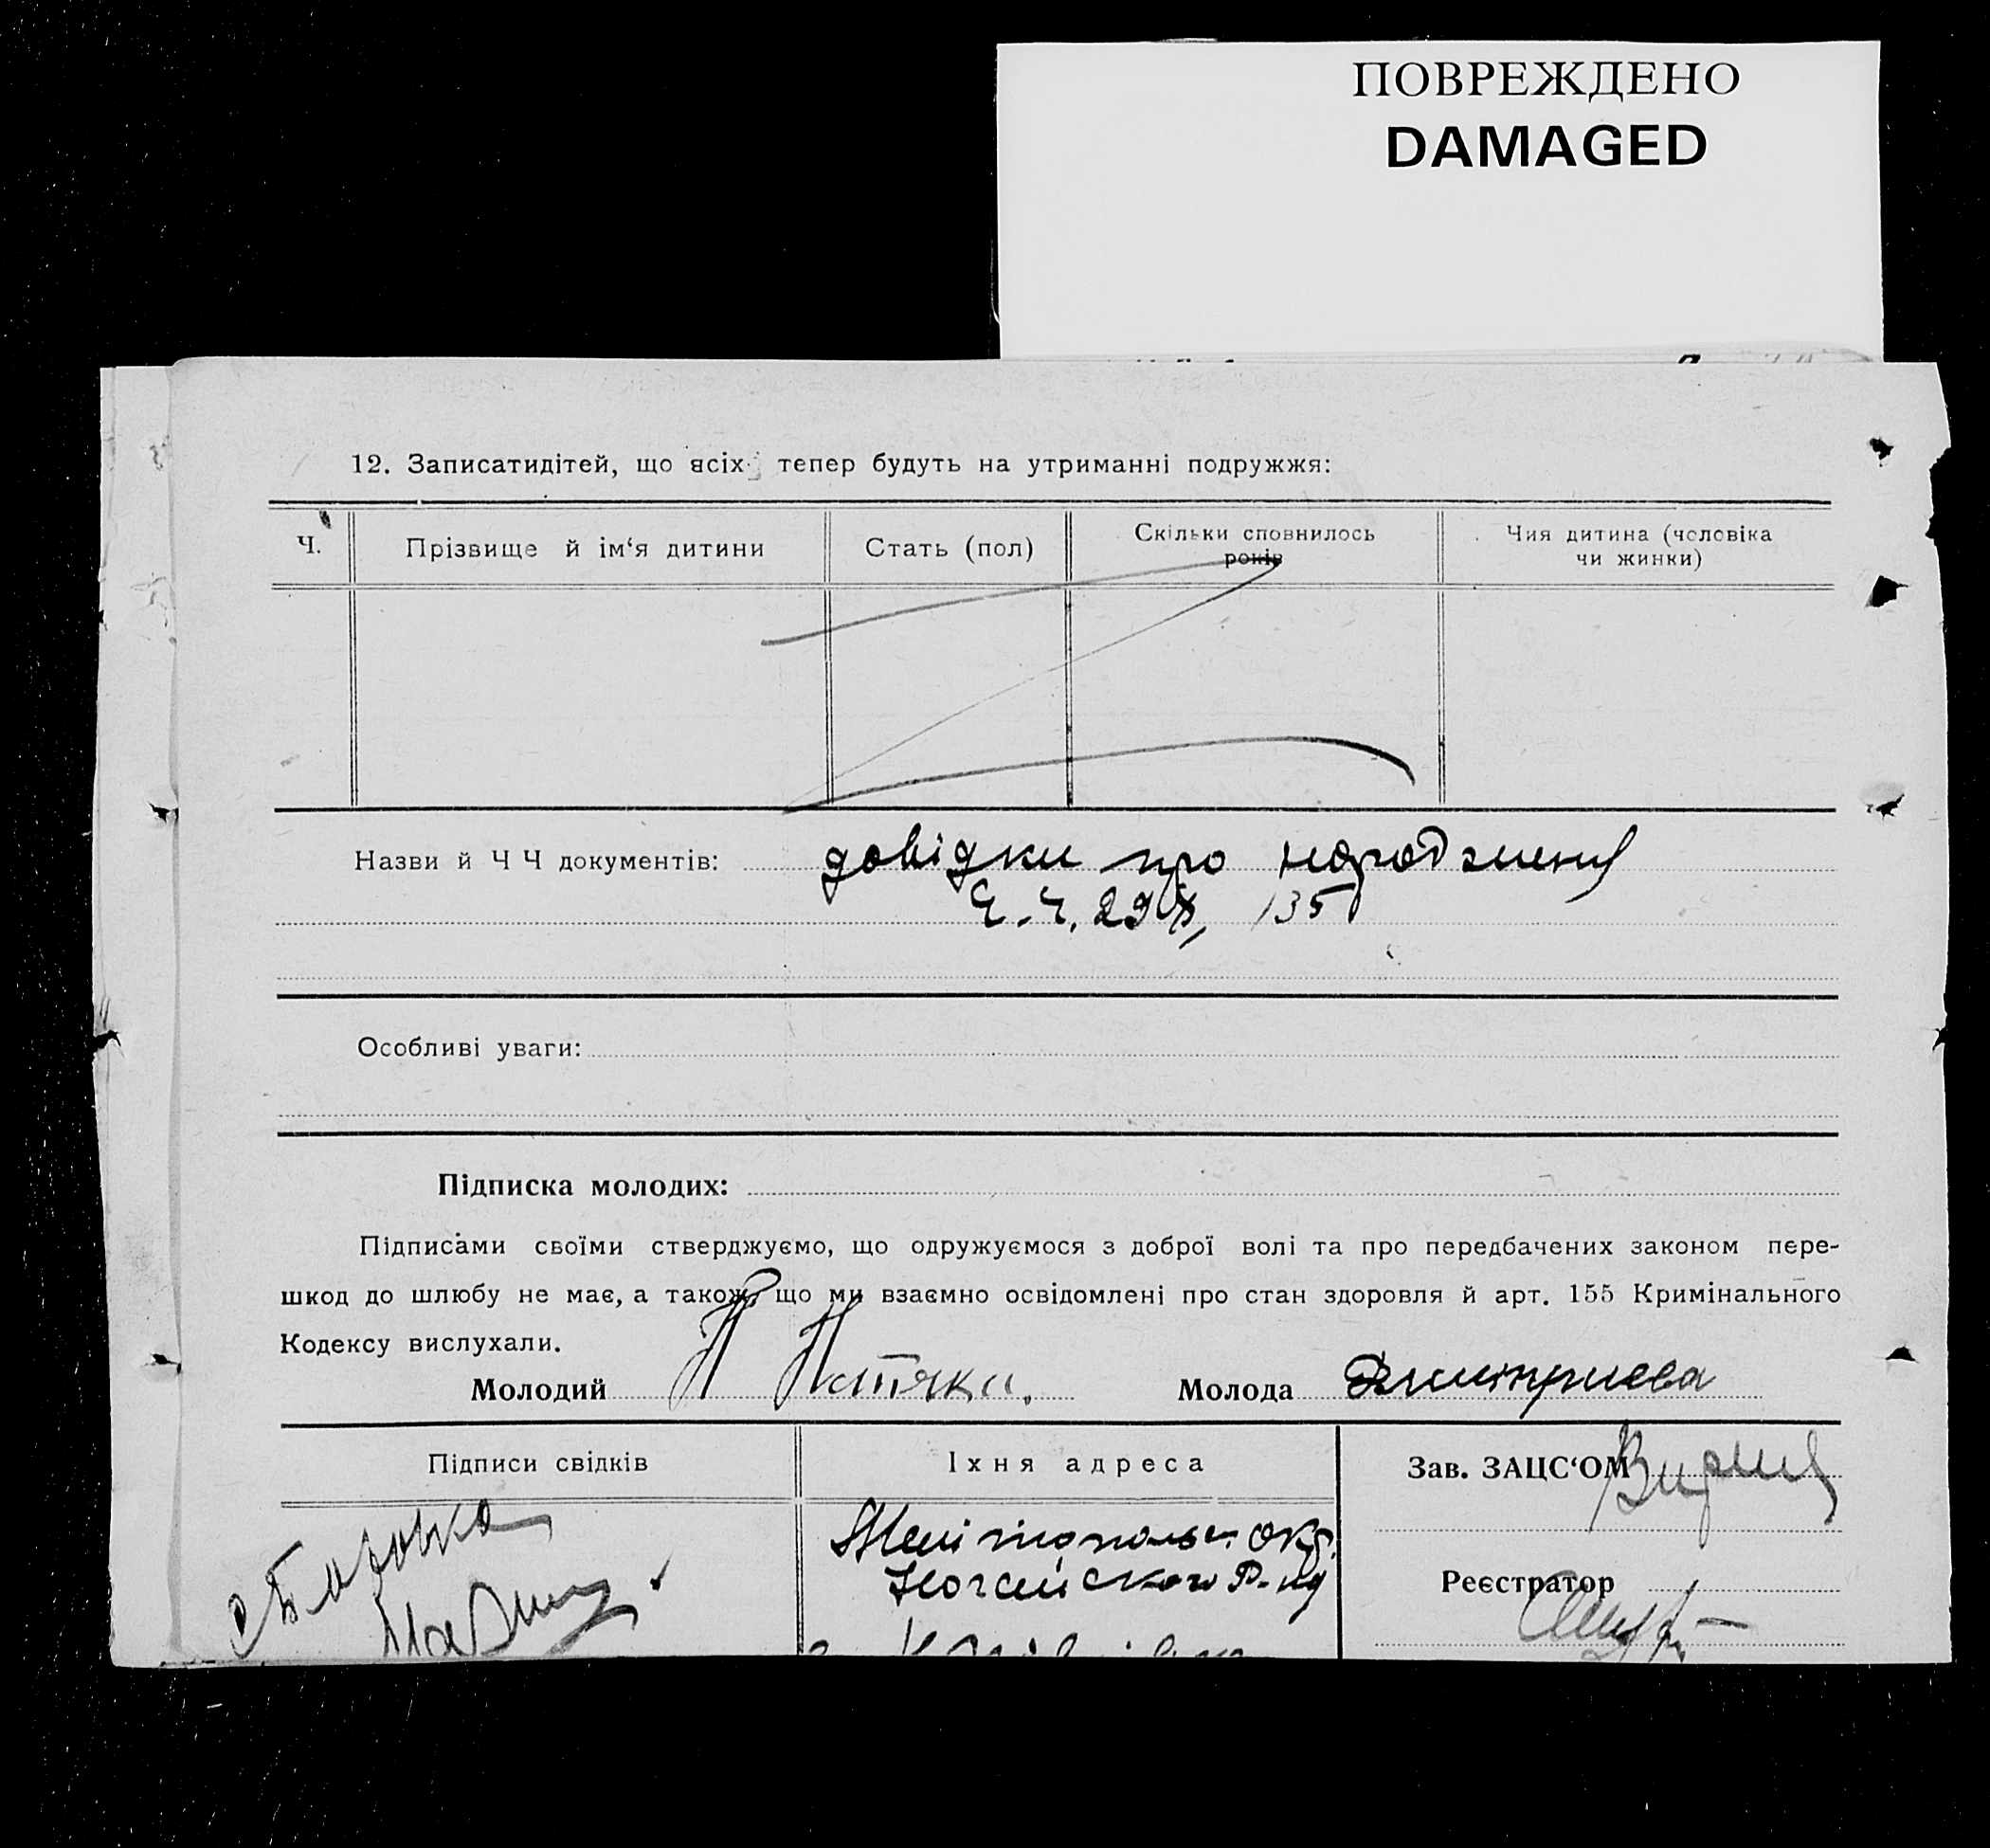 ПОВРЕЖДЕНО
DAMAGED
12. Записатидітей, що всіх тепер будуть на утриманні подружжя:
Ч.
Прізвище й ім‘я дитини
Стать (пол)
Скільки сповнилось
років
Чия дитина (чоловіка
чи жинки)
Назви й Ч Ч документів: довідки про народження
Ч.-Ч. 135
Особливі уваги:
Підписка молодих:
Підписами своїми стверджуємо, що одружуємося з доброї волі та про передбачених законом пере-
шкод до шлюбу не має, а також, що ми взаємно освідомлені про стан здоровля й арт. 155 Кримінального
Кодексу вислухали.
Молодий
Молода Дмитриева
Підписи свідків
Їхня адреса
Зав. ЗАЦС‘ОМ
Мелітопольс. окр.
Ногайского Р-ну
Реєстратор